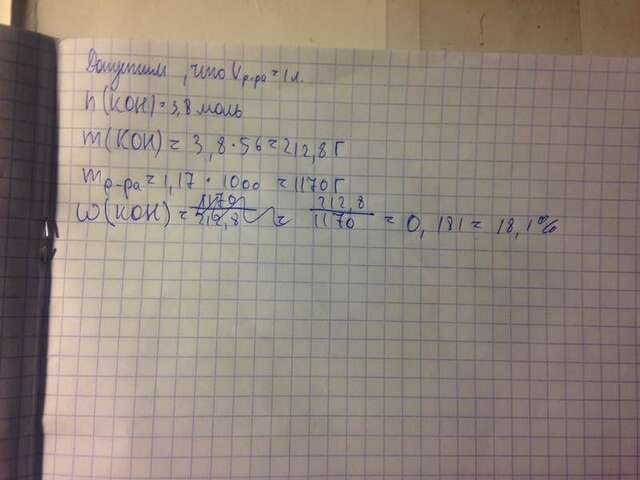 Допустим, что Vр-ра = 1л.
n(KOH) = 3,8 моль
m(KOH) = 3,8 · 56 = 212,8г
mр-ра = 1,17 · 1000 = 1170г
ω(KOH) = 212,8/1170 = 0,181 = 18,1%